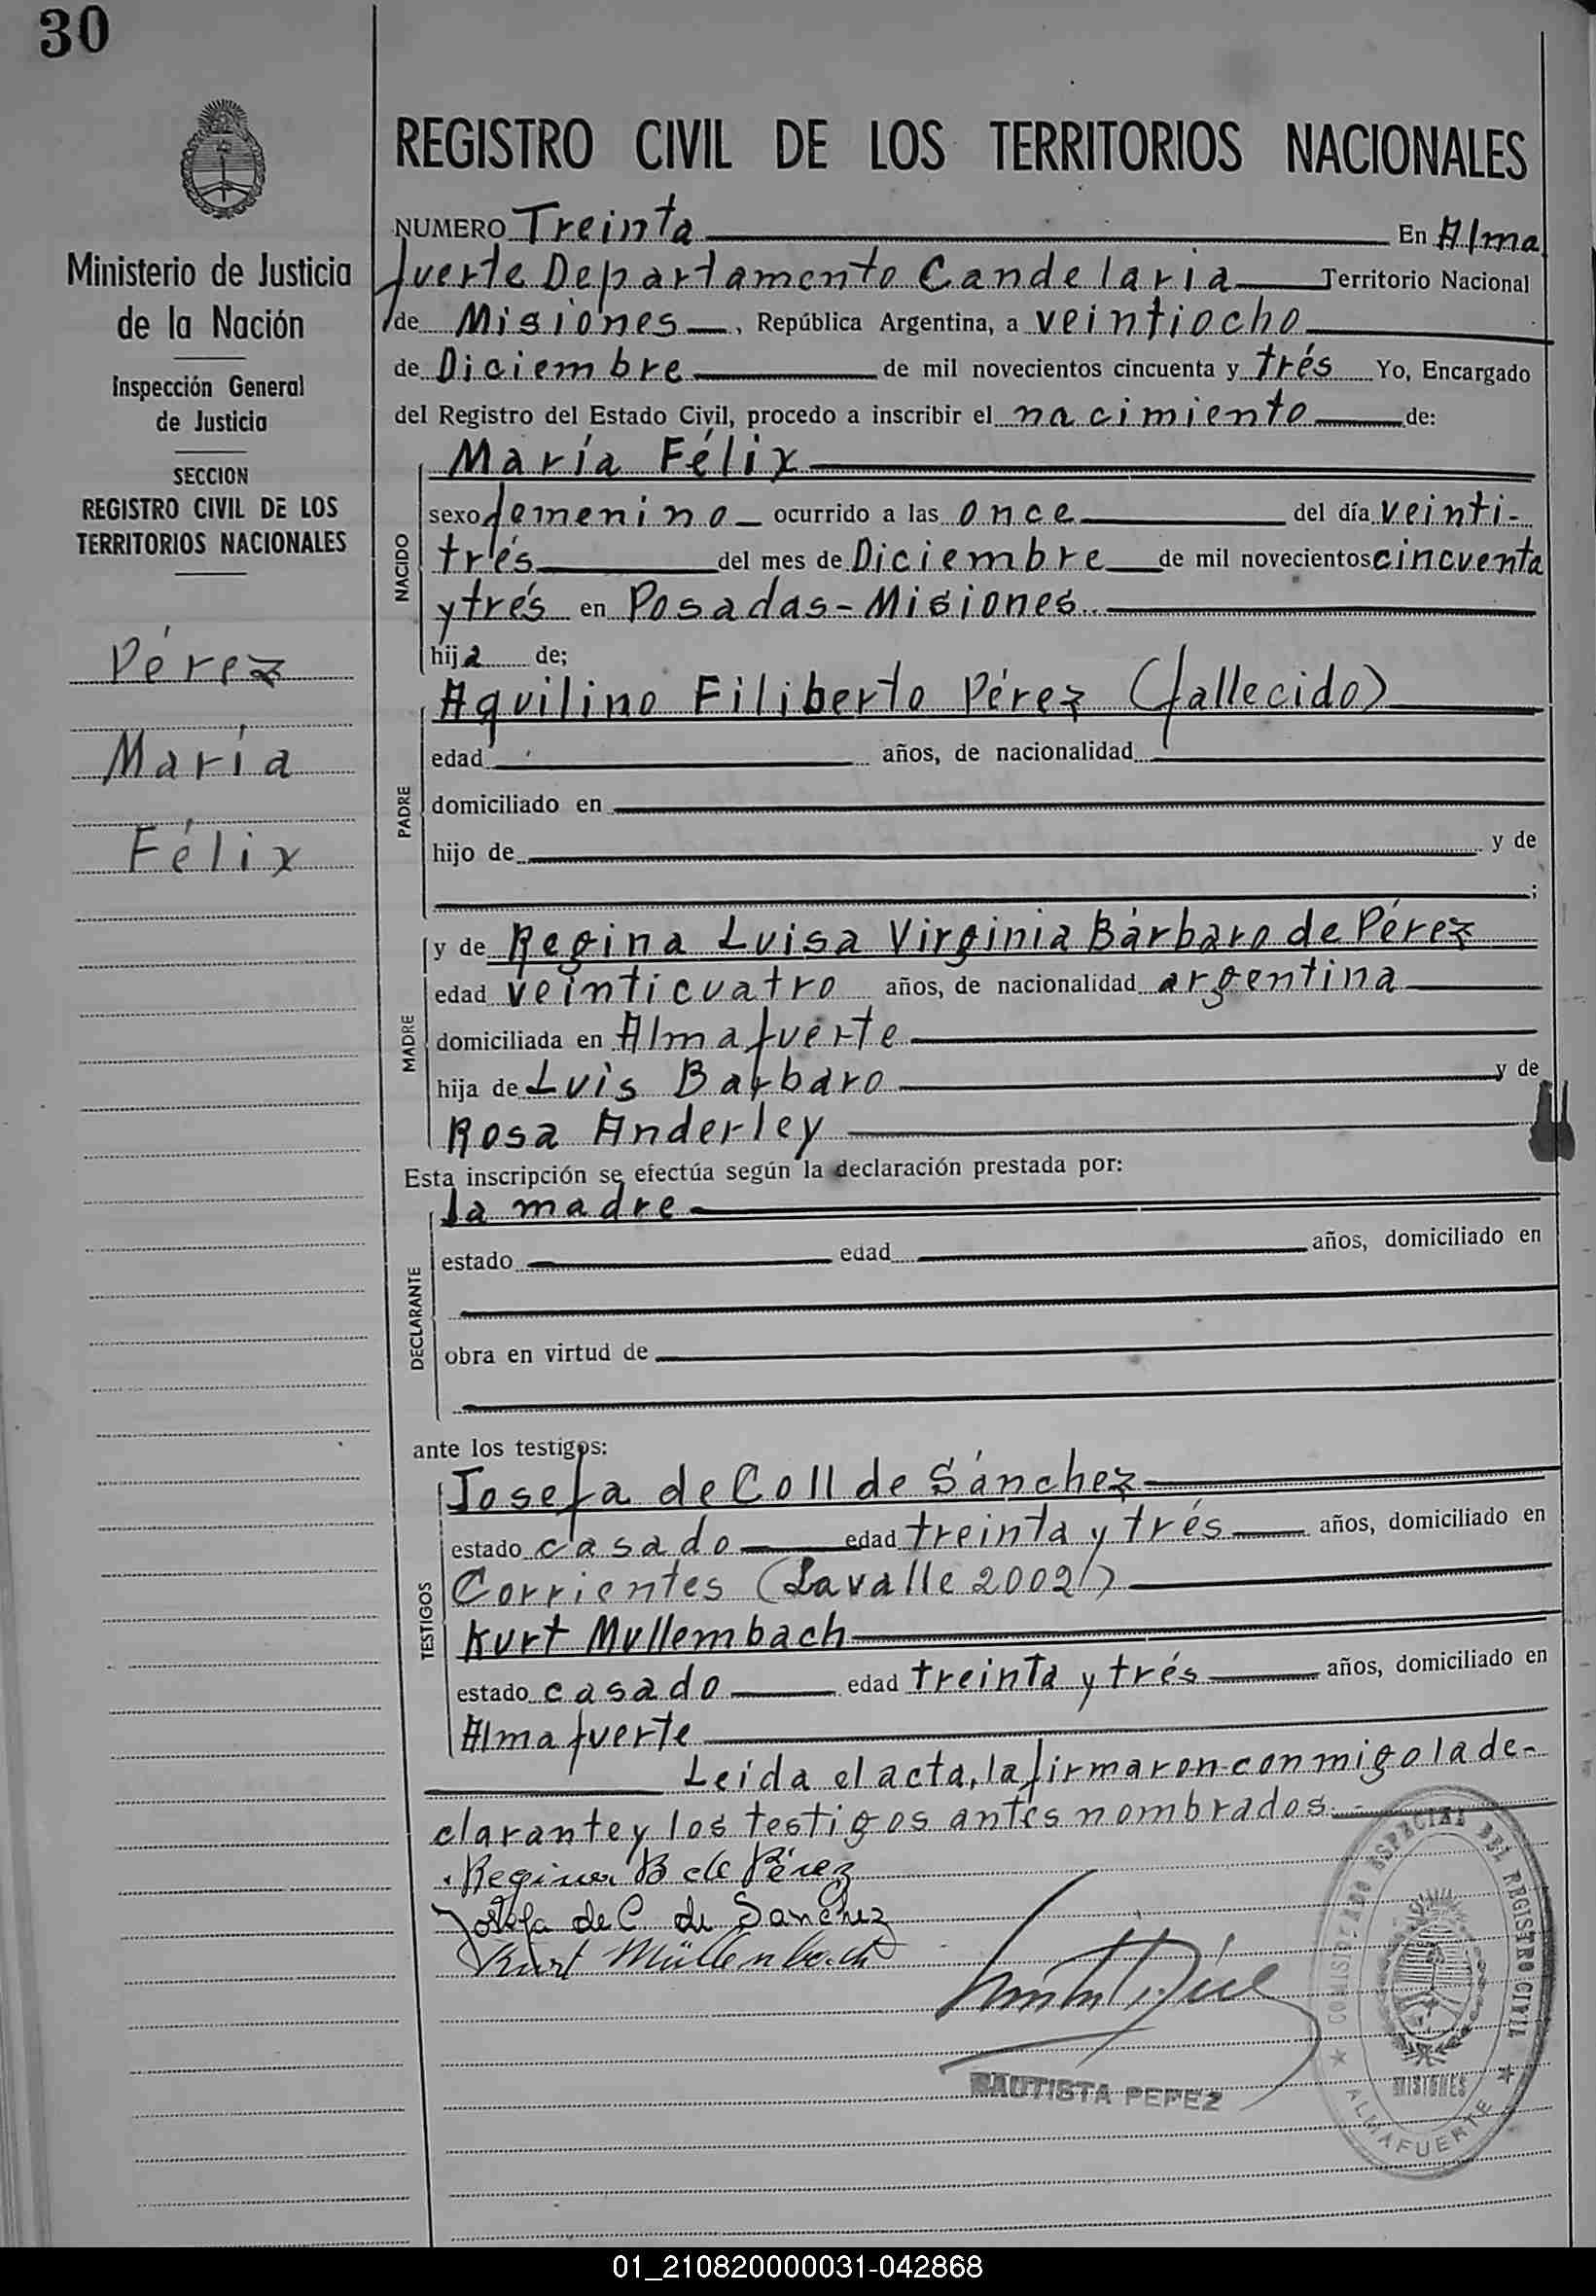 30
REGISTRO CIVIL DE LOS TERRITORIOS NACIONALES
Ministerio de Justicia
de la Nación
Inspección General
de Justicia
SECCION
REGISTRO CIVIL DE LOS
TERRITORIOS NACIONALES
Pérez
María
Félix
NUMERO Treinta En Alma
fuerte Departamento Candelaria Territorio Nacional
de Misiones, República Argentina, a veintiocho
de Diciembre de mil novecientos cincuenta y trés Yo, Encargado
del Registro del Estado Civil, procedo a inscribir el nacimiento de:
NACIDO
María Félix
sexo femenino ocurrido a las once del día veinti-
trés del mes de Diciembre de mil novecientos cincuenta
y trés en Posadas-Misiones.
hija de;
PADRE
Aquilino Filiberto Pérez (fallecido)
edad años, de nacionalidad
domiciliado en
hijo de y de
;
MADRE
y de Regina Luisa Virginia Bárbaro de Pérez
edad veinticuatro años, de nacionalidad argentina
domiciliada en Almafuerte
hija de Luis Barbaro y de
Rosa Anderley
Esta inscripción se efectúa según la declaración prestada por:
DECLARANTE
la madre
estado edad años, domiciliado en
obra en virtud de
ante los testigos:
TESTIGOS
Josefa de Coll de Sánchez
estado casado edad treinta y trés años, domiciliado en
Corrientes (Lavalle 2002)
Kurt Mullembach
estado casado edad treinta y trés años, domiciliado en
Almafuerte
Leída el acta, la firmaron conmigo la de-
clarante y los testigos antes nombrados.
Regina B de Pérez
Josefa de C. de Sanchez
Kurt Müllenbach
BAUTISTA PEREZ
COMISIONADO ESPECIAL DEL REGISTRO CIVIL
MISIONES
ALMAFUERTE
01_210820000031-042868